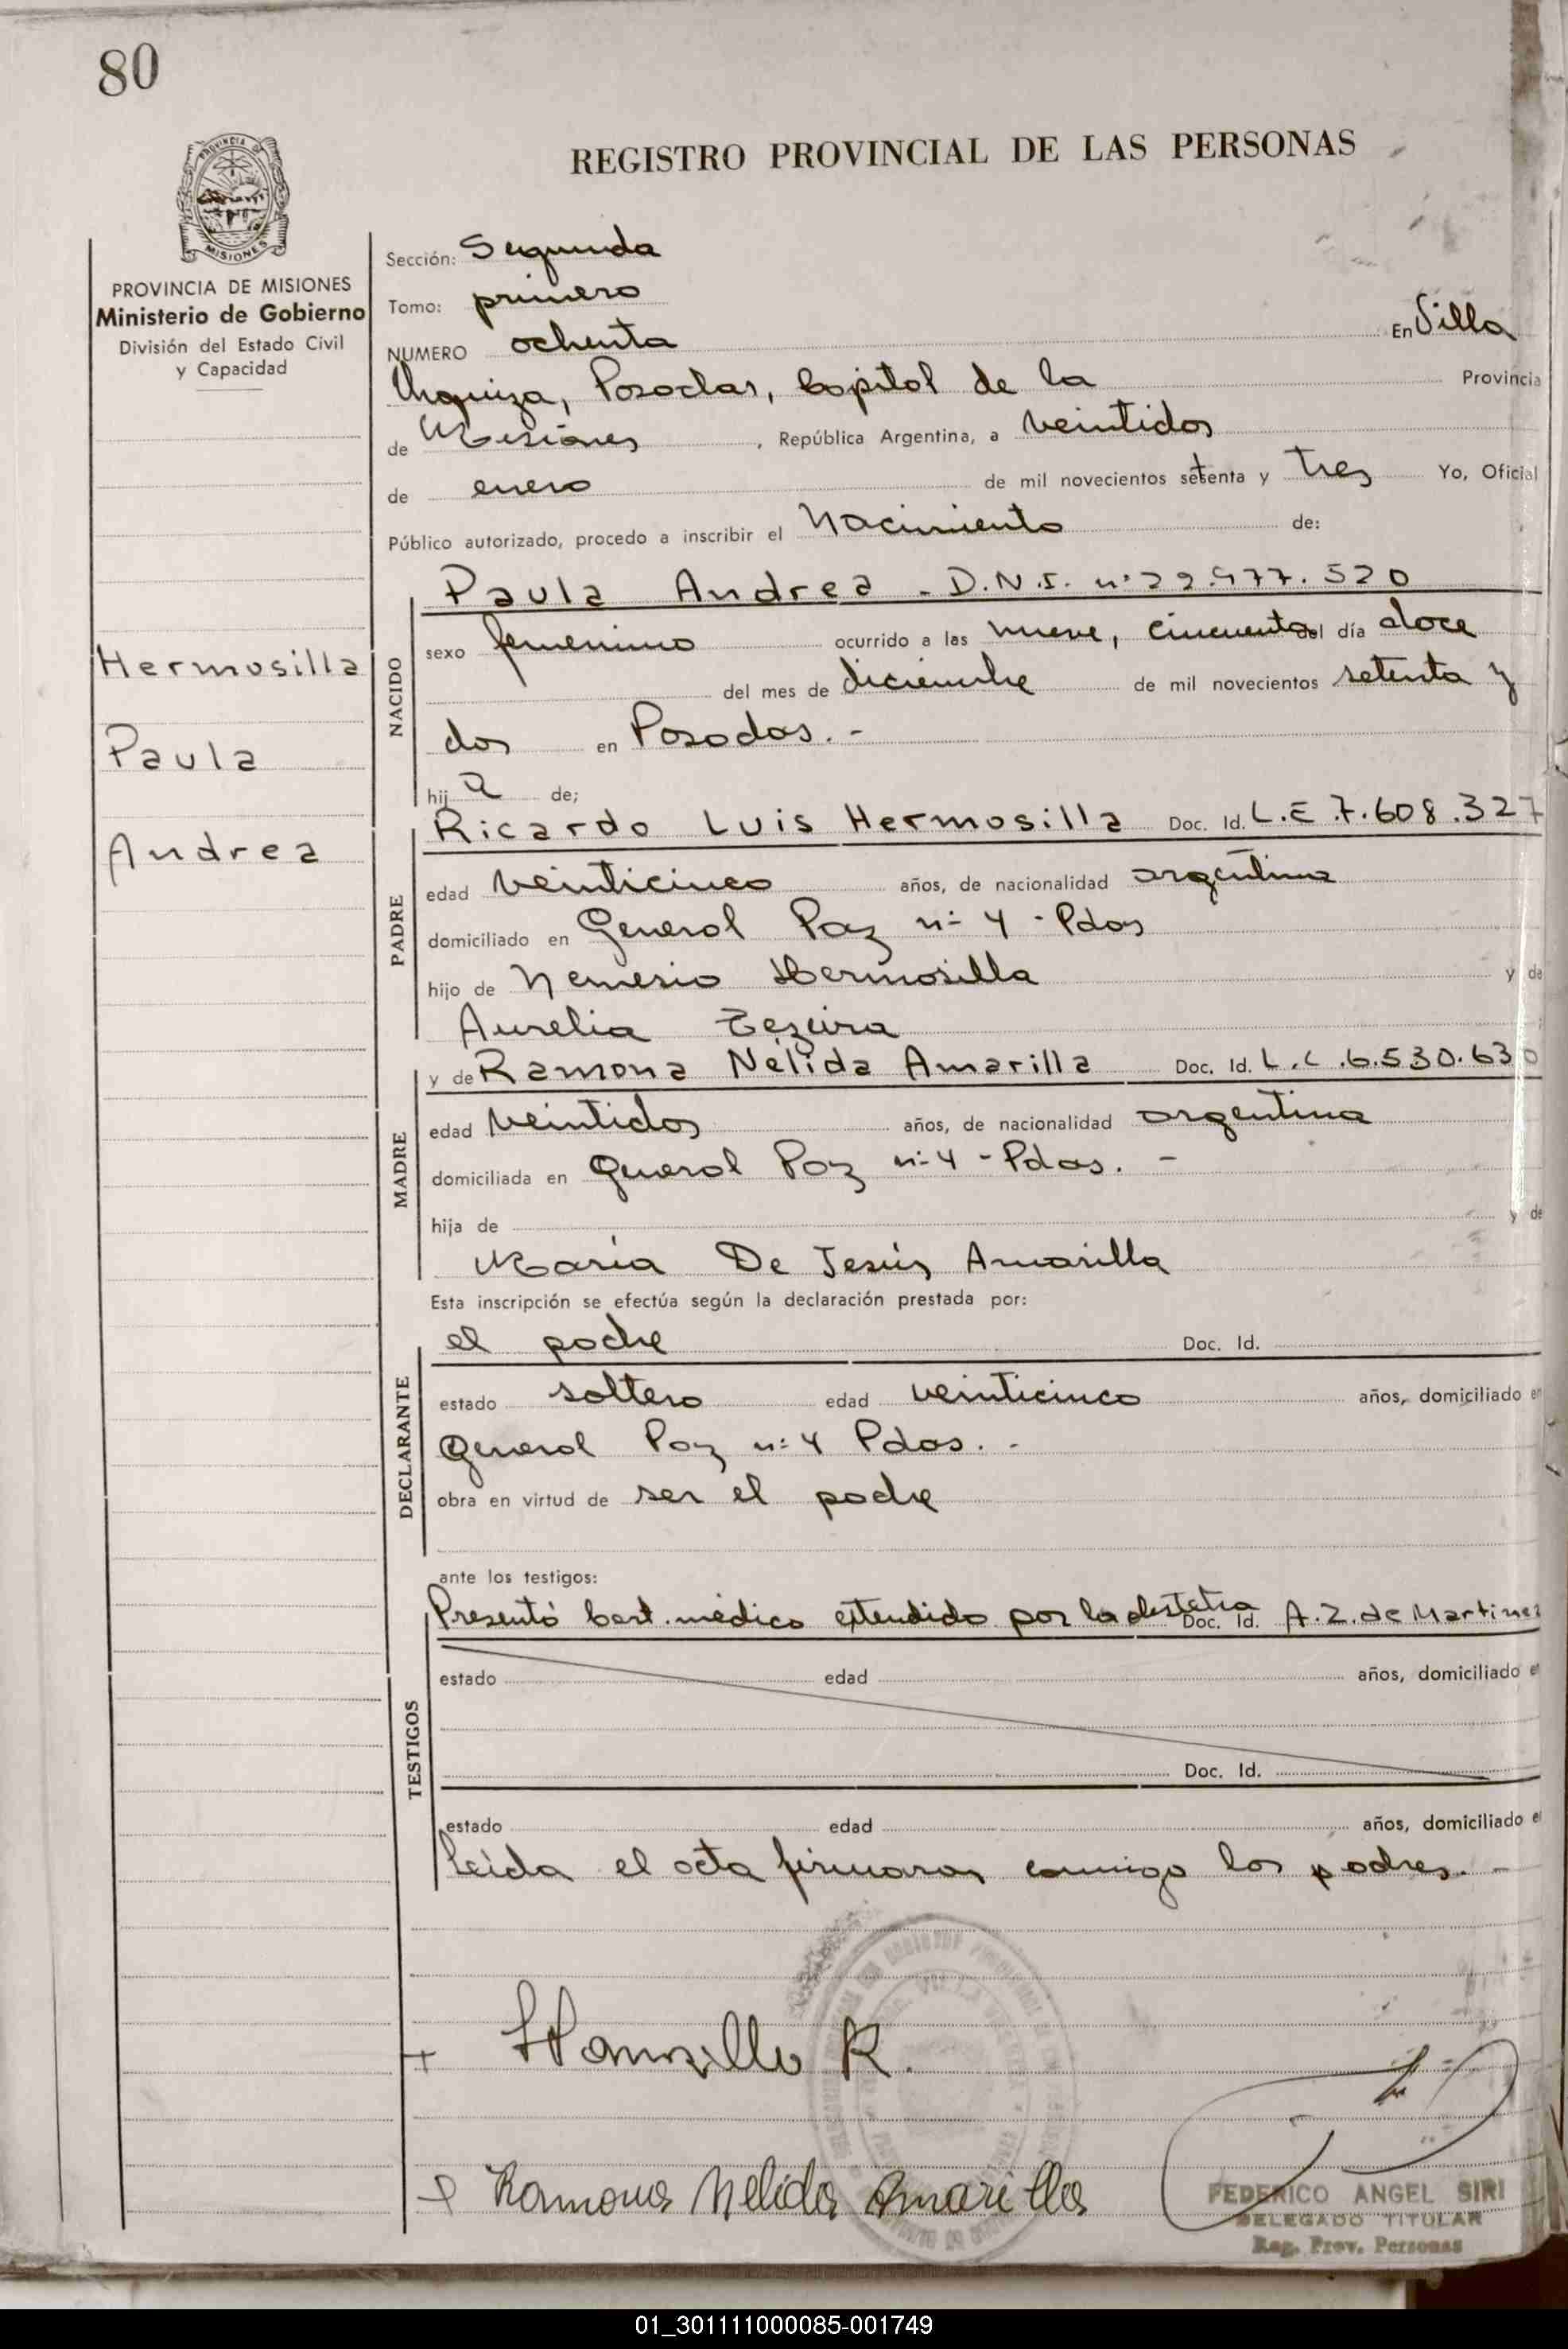 80
REGISTRO PROVINCIAL DE LAS PERSONAS
PROVINCIA DE MISIONES
Ministerio de Gobierno
División del Estado Civil
y Capacidad
Hermosilla
Paula
Andrea
Sección: Segunda
Tomo: primero
NUMERO ochenta En Villa
Urquiza, Posadas, Capital de la Provincia
de Misiones, República Argentina, a veintidos
de enero de mil novecientos setenta y tres Yo, Oficial
Público autorizado, procedo a inscribir el Nacimiento de:
NACIDO
Paula Andrea - D.N.I. nº 22.977.520
sexo femenino ocurrido a las nueve, cincuenta del día doce
del mes de diciembre de mil novecientos setenta y
dos en Posadas. -
hija de;
PADRE
Ricardo Luis Hermosilla Doc. Id. L.E. 7.608.327
edad veinticinco años, de nacionalidad argentina
domiciliado en General Paz nº 4 - Pdas
hijo de Nemesio Hermosilla y de
Aurelia
MADRE
y de Ramona Nélida Amarilla Doc. Id. L.C. 6.530.630
edad veintidos años, de nacionalidad argentina
domiciliada en General Paz nº 4 - Pdas. -
hija de y de
María De Jesús Amarilla
Esta inscripción se efectúa según la declaración prestada por:
DECLARANTE
el padre Doc. Id.
estado soltero edad veinticinco años, domiciliado en
General Paz nº 4 Pdas. -
obra en virtud de ser el padre
ante los testigos:
TESTIGOS
Presentó Cert. médico extendido por la obstetra Doc. Id. A. Z. de Martinez
estado edad años, domiciliado e
Doc. Id.
estado edad años, domiciliado e
Leída el acta firmaron conmigo los padres. -
Hermosilla R.
Ramona Nelida Amarilla
FEDERICO ANGEL SIRI
DELEGADO TITULAR
Reg. Prov. Personas
01_301111000085-001749